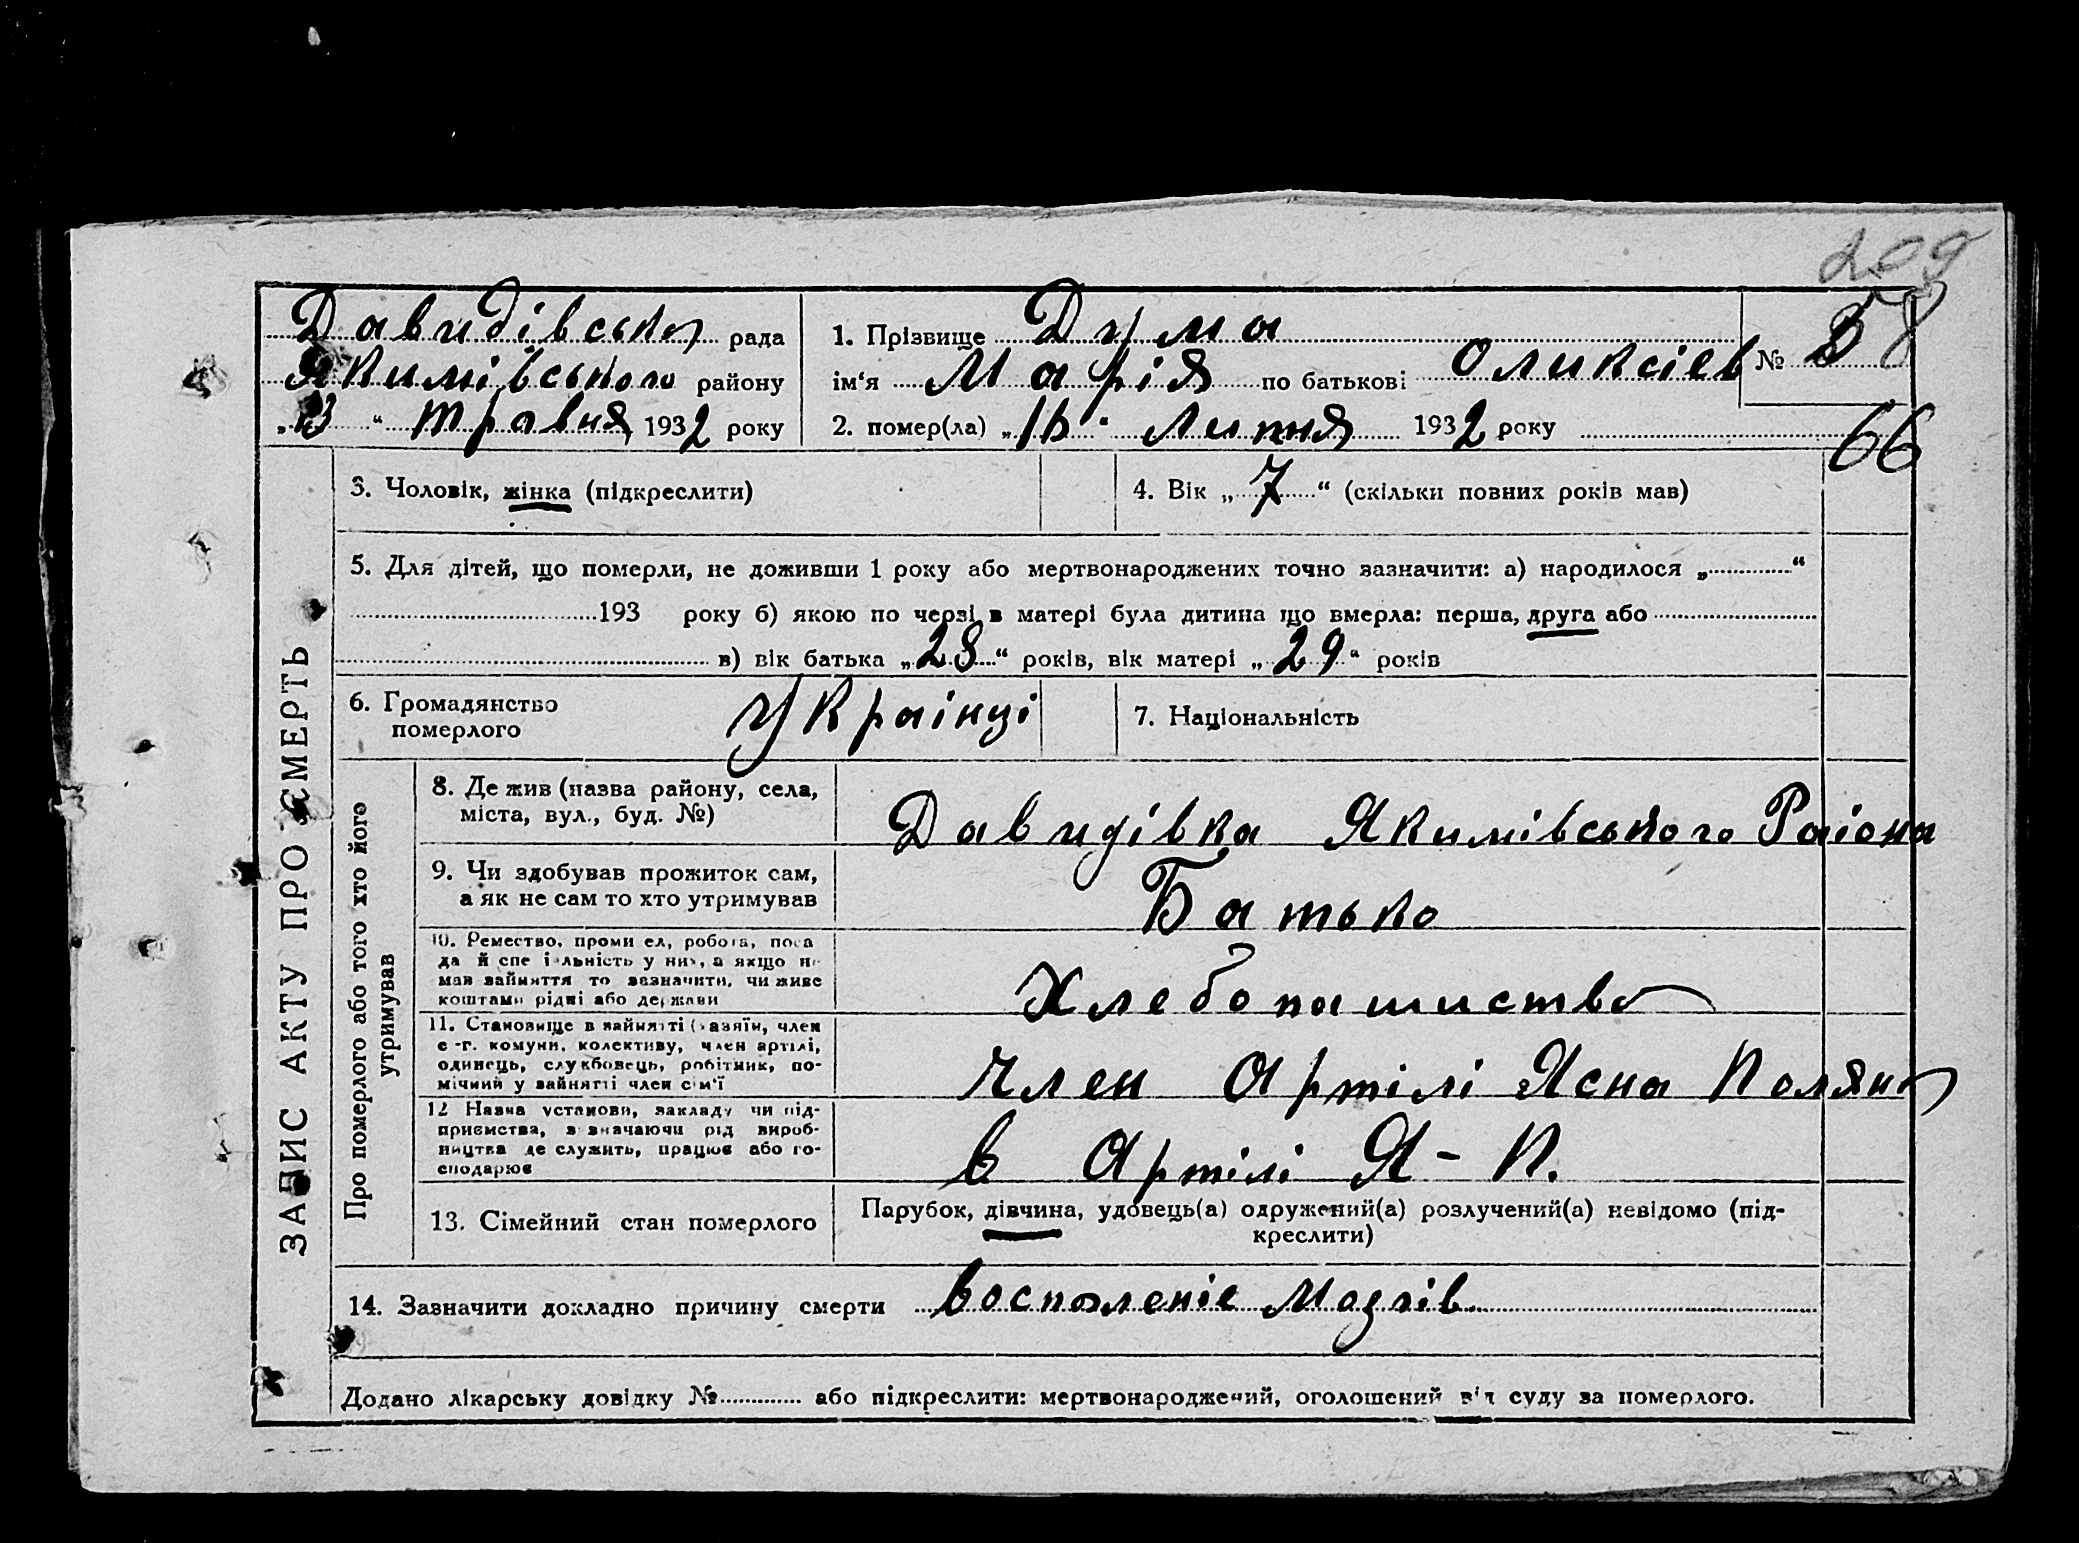 209
Давидівська рада
Якимівського району
„13“ травня 1932 року
1. Прізвище Дума
ім‘я Марія по батькові Оликсіев
2. помер(ла) „1 “ Лютня 1932 року
№ 58
66
ЗАПИС АКТУ ПРО СМЕРТЬ
3. Чоловік, жінка (підкреслити)
4. Вік „7“ (скільки повних років мав)
5. Для дітей, що померли, не доживши 1 року або мертвонароджених точно зазначити: а) народилося „ “
193 року б) якою по черзі в матері була дитина що вмерла: перша, друга або
в) вік батька „28“ років, вік матері „29“ років
6. Громадянство
померлого
Украінці
7. Національність
Про померлого або того хто його
утримував
8. Де жив (назва району, села,
міста, вул., буд. №)
Давидівка Якимівського Раіона
9. Чи здобував прожиток сам,
а як не сам то хто утримував
Батько
10. Ремество, проми ел, робота, поса
да й спе і льність у них, а якщо не
мав займяття то зазначити, чи живе
коштами рідні або держави
Хлебопашиство
11. Становище в займятті (хазяїн, член
с.-г. комуни, колективу, член артілі,
одинець, службовець, робітник, по-
мічний у займятті член сім‘ї
Член Артілі Ясна Поляна
12 Назва установи, закладу чи під-
приємства, з значаючи рід вироб-
ництва де служить, працює або го-
сподарює
в Артілі Я - П.
13. Сімейний стан померлого
Парубок, дівчина, удовець(а) одружений(а) розлучений(а) невідомо (під-
креслити)
14. Зазначити докладно причину смерти воспаленіе Мозгів
Додано лікарську довідку № або підкреслити: мертвонароджений, оголошений від суду за померлого.